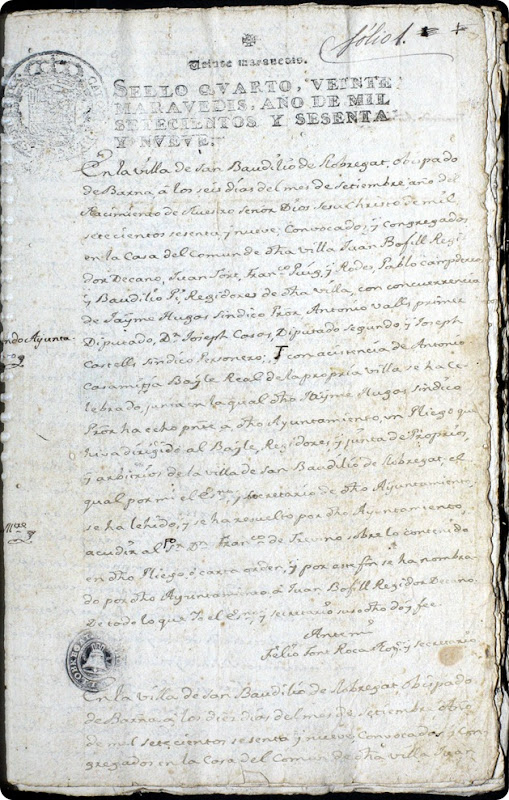 fólio 1.
Veinte maravedis.
SELLO QVARTO, VEINTE
MARAVEDIS, AÑO DE MIL
SETECIENTOS Y SESENTA
Y NVEVE.
En la villa de San Baudilio de Llobregat, obispado
de Barna á los seis dias del mes de Setiembre año del
Nacimiento de Nuestro Señor Dios Jesu Christo de mil
setecientos sesenta y nueve; Convocados, y congregados
en la Casa del Comun de dha villa Juan Bofill Regi-
dor Decano, Juan Font, Franco Puig, y Rodes, Pablo
y Baudilio Pi, Regidores de dha villa, con concurrencia
de Jayme Mugas Sindico Pror Antonio Valls primer
Diputado, Dn Joseph Casas, Diputado segundo y Joseph
Castells Sindico Personero; Y con asistencia de Antonio
Casamitja Bayle Real de la propria villa se ha ce-
lebrado, junta en la qual dho Jayme Mugas Sindico
Pror ha echo pnte a dho Ayuntamiento, un Pliego que
hiva dirigido al Bayle, Regidores y junta de Proprios,
y arbitrios de la villa de San Baudilio de Llobregat, el
qual por mi el Esno, y Secretario de dho Ayuntamiento,
se ha lehido, y se ha resuelto por dho Ayuntamiento,
acudir al Sr Dn Franco de Trevino sobre lo contenido
en dho Pliego, ó carta orden, y por ate fin se ha nombra-
do por dho Ayuntamiento, á Juan Bofill Regidor Decano.
De todo lo que Yo el Esno y Secretario susodho doy fee.
Ante mi
Felio Font Roca Esno y secretario
En la villa de San Baudilio de Llobregat, Obispado
de Barna á los diez dias del mes de Setiembre año
de mil setecientos sesenta y nueve Convocados y Con-
gregados en la Casa del Comun de dha villa Juan